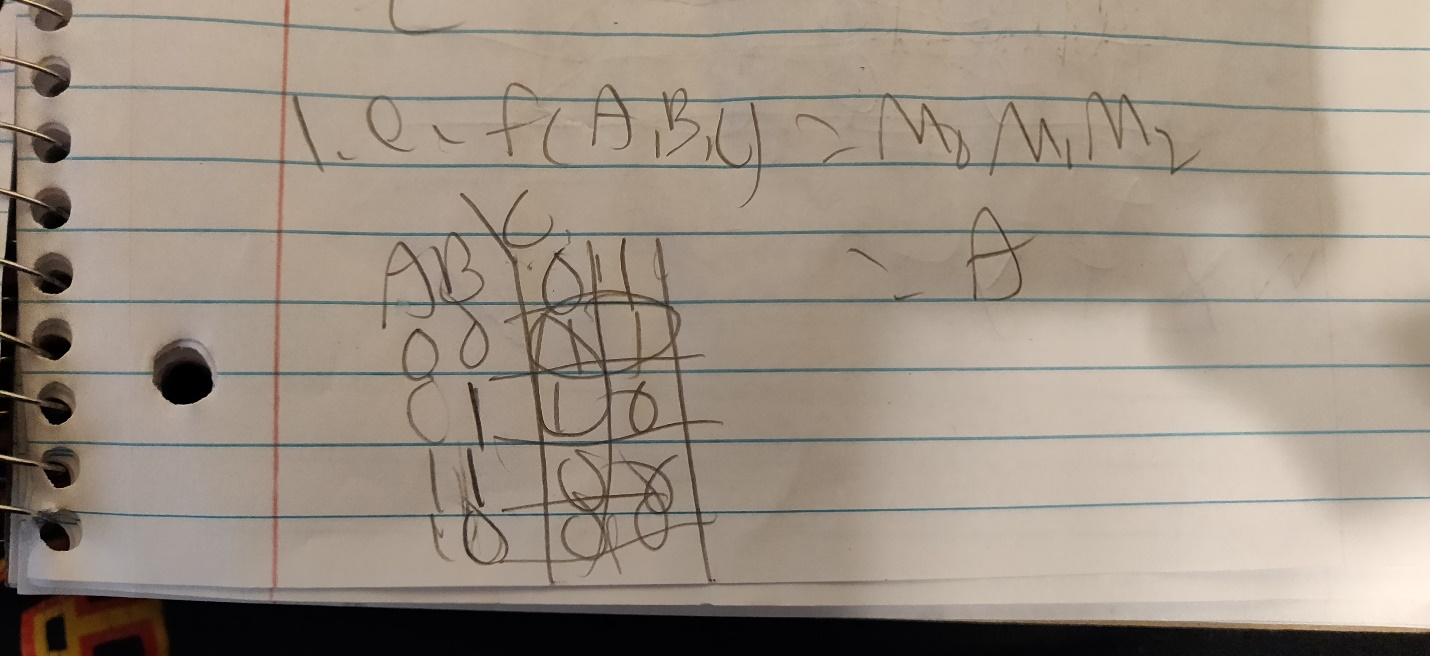 1.e. f(A,B,C) = M0 M1 M2
AB \ C 0 1
= A
00 1 1
01 1 0
11 0 0
10 0 0